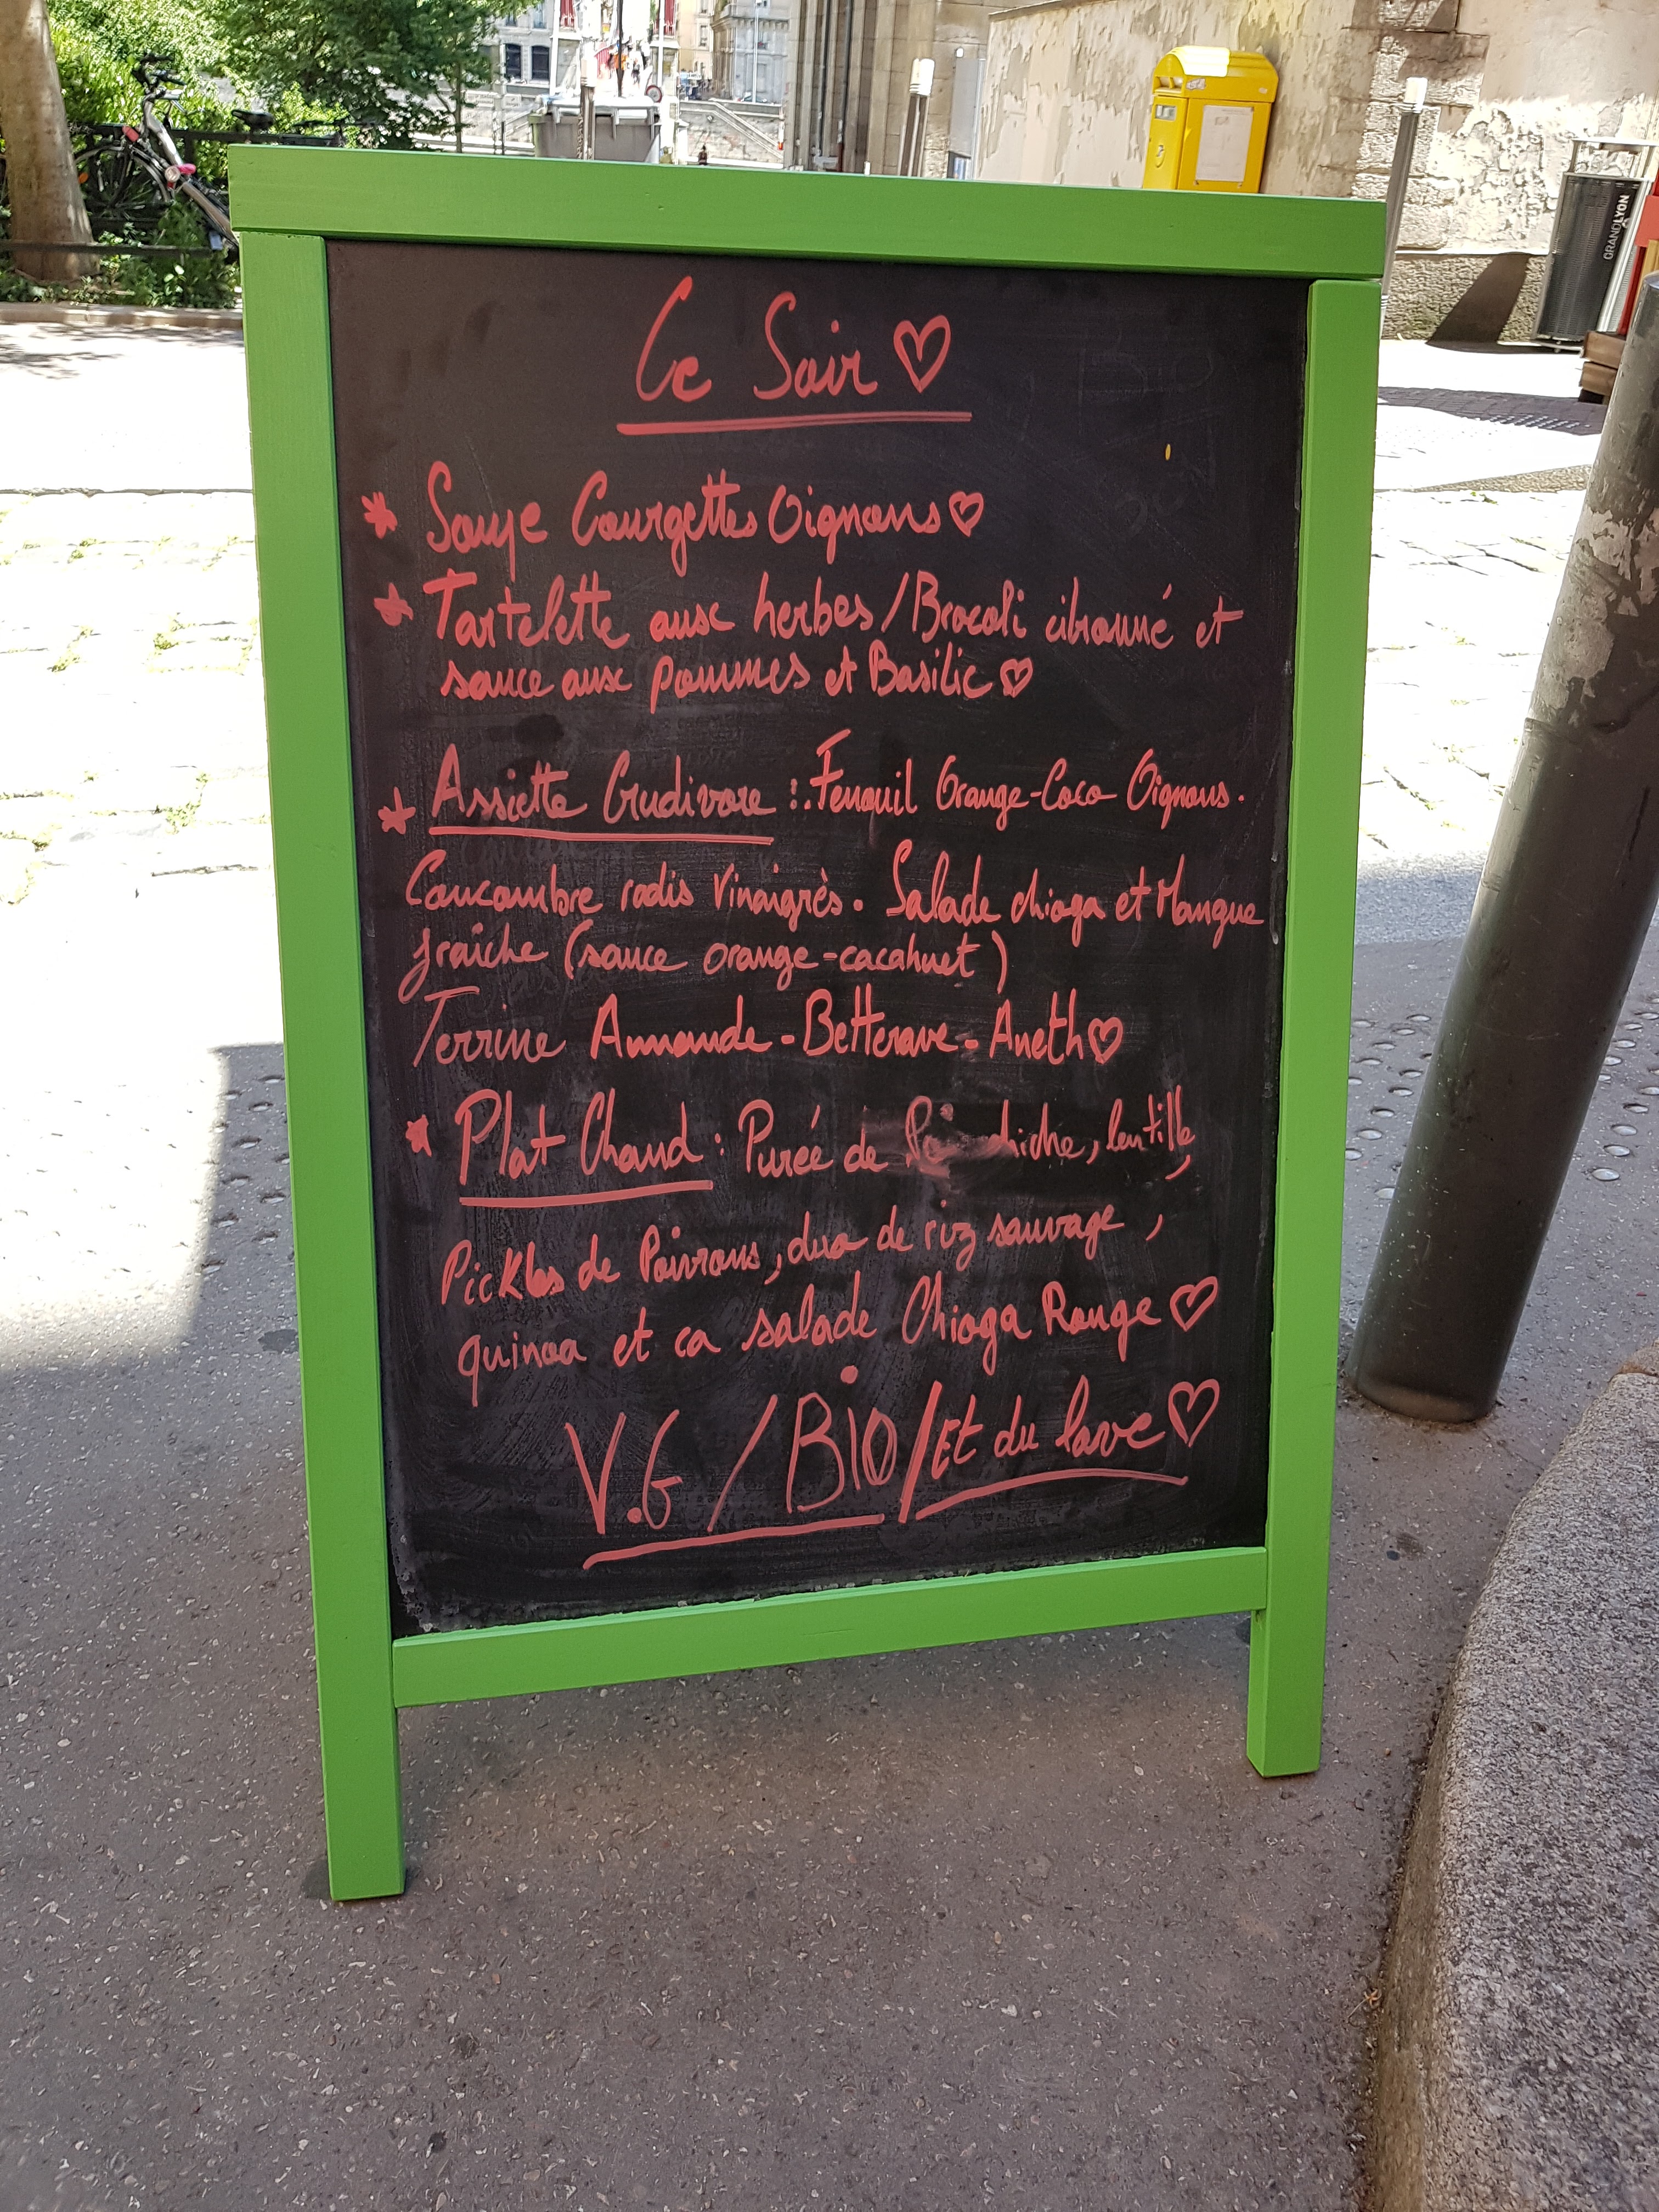 Ce Soir ♡
* Soupe Courgettes Oignons ♡
* Tartelette aux herbes / Brocoli citronné et
sauce aux pommes et Basilic ♡
* Assiette Crudivore : . Fenouil Orange-Coco Oignons .
Concombre radis Vinaigrés . Salade chioga et Mangue
fraîche (sauce orange-cacahuet )
Terrine Amande - Betterave - Aneth ♡
* Plat Chaud : Purée de Pois chiche, lentille,
Pickles de Poivrons, duo de riz sauvage ,
quinoa et ca salade Chioga Rouge ♡
V.G / BiO / Et du love ♡
GRANDLYON